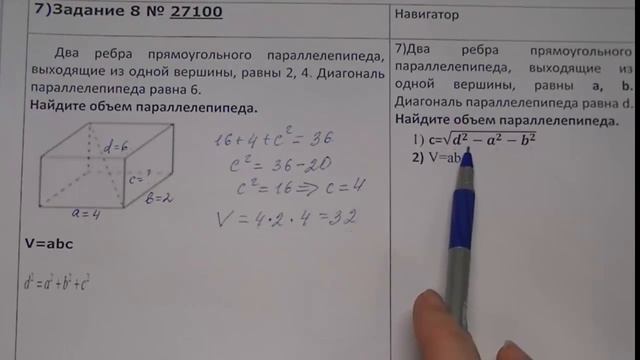 7)Задание 8 № 27100
Два ребра прямоугольного параллелепипеда,
выходящие из одной вершины, равны 2, 4. Диагональ
параллелепипеда равна 6.
Найдите объем параллелепипеда.
d=6
c=?
b=2
a=4
16+4+c²=36
c²=36-20
c²=16⇒c=4
V=4·2·4=32
V=abc
d²=a²+b²+c²
Навигатор
7)Два ребра прямоугольного
параллелепипеда, выходящие из
одной вершины, равны a, b.
Диагональ параллелепипеда равна d.
Найдите объем параллелепипеда.
1) c=√d² − a² − b²
2) V=ab